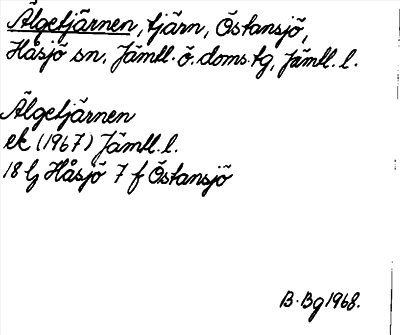 Älgetjärnen, tjärn, Östansjö,
Håsjö sn, Jämtl. ö. doms. tg, Jämtl. l.
Älgetjärnen
ek (1967) Jämtl. l.
18 lj Håsjö 7 f Östansjö
B. Bg 1968.